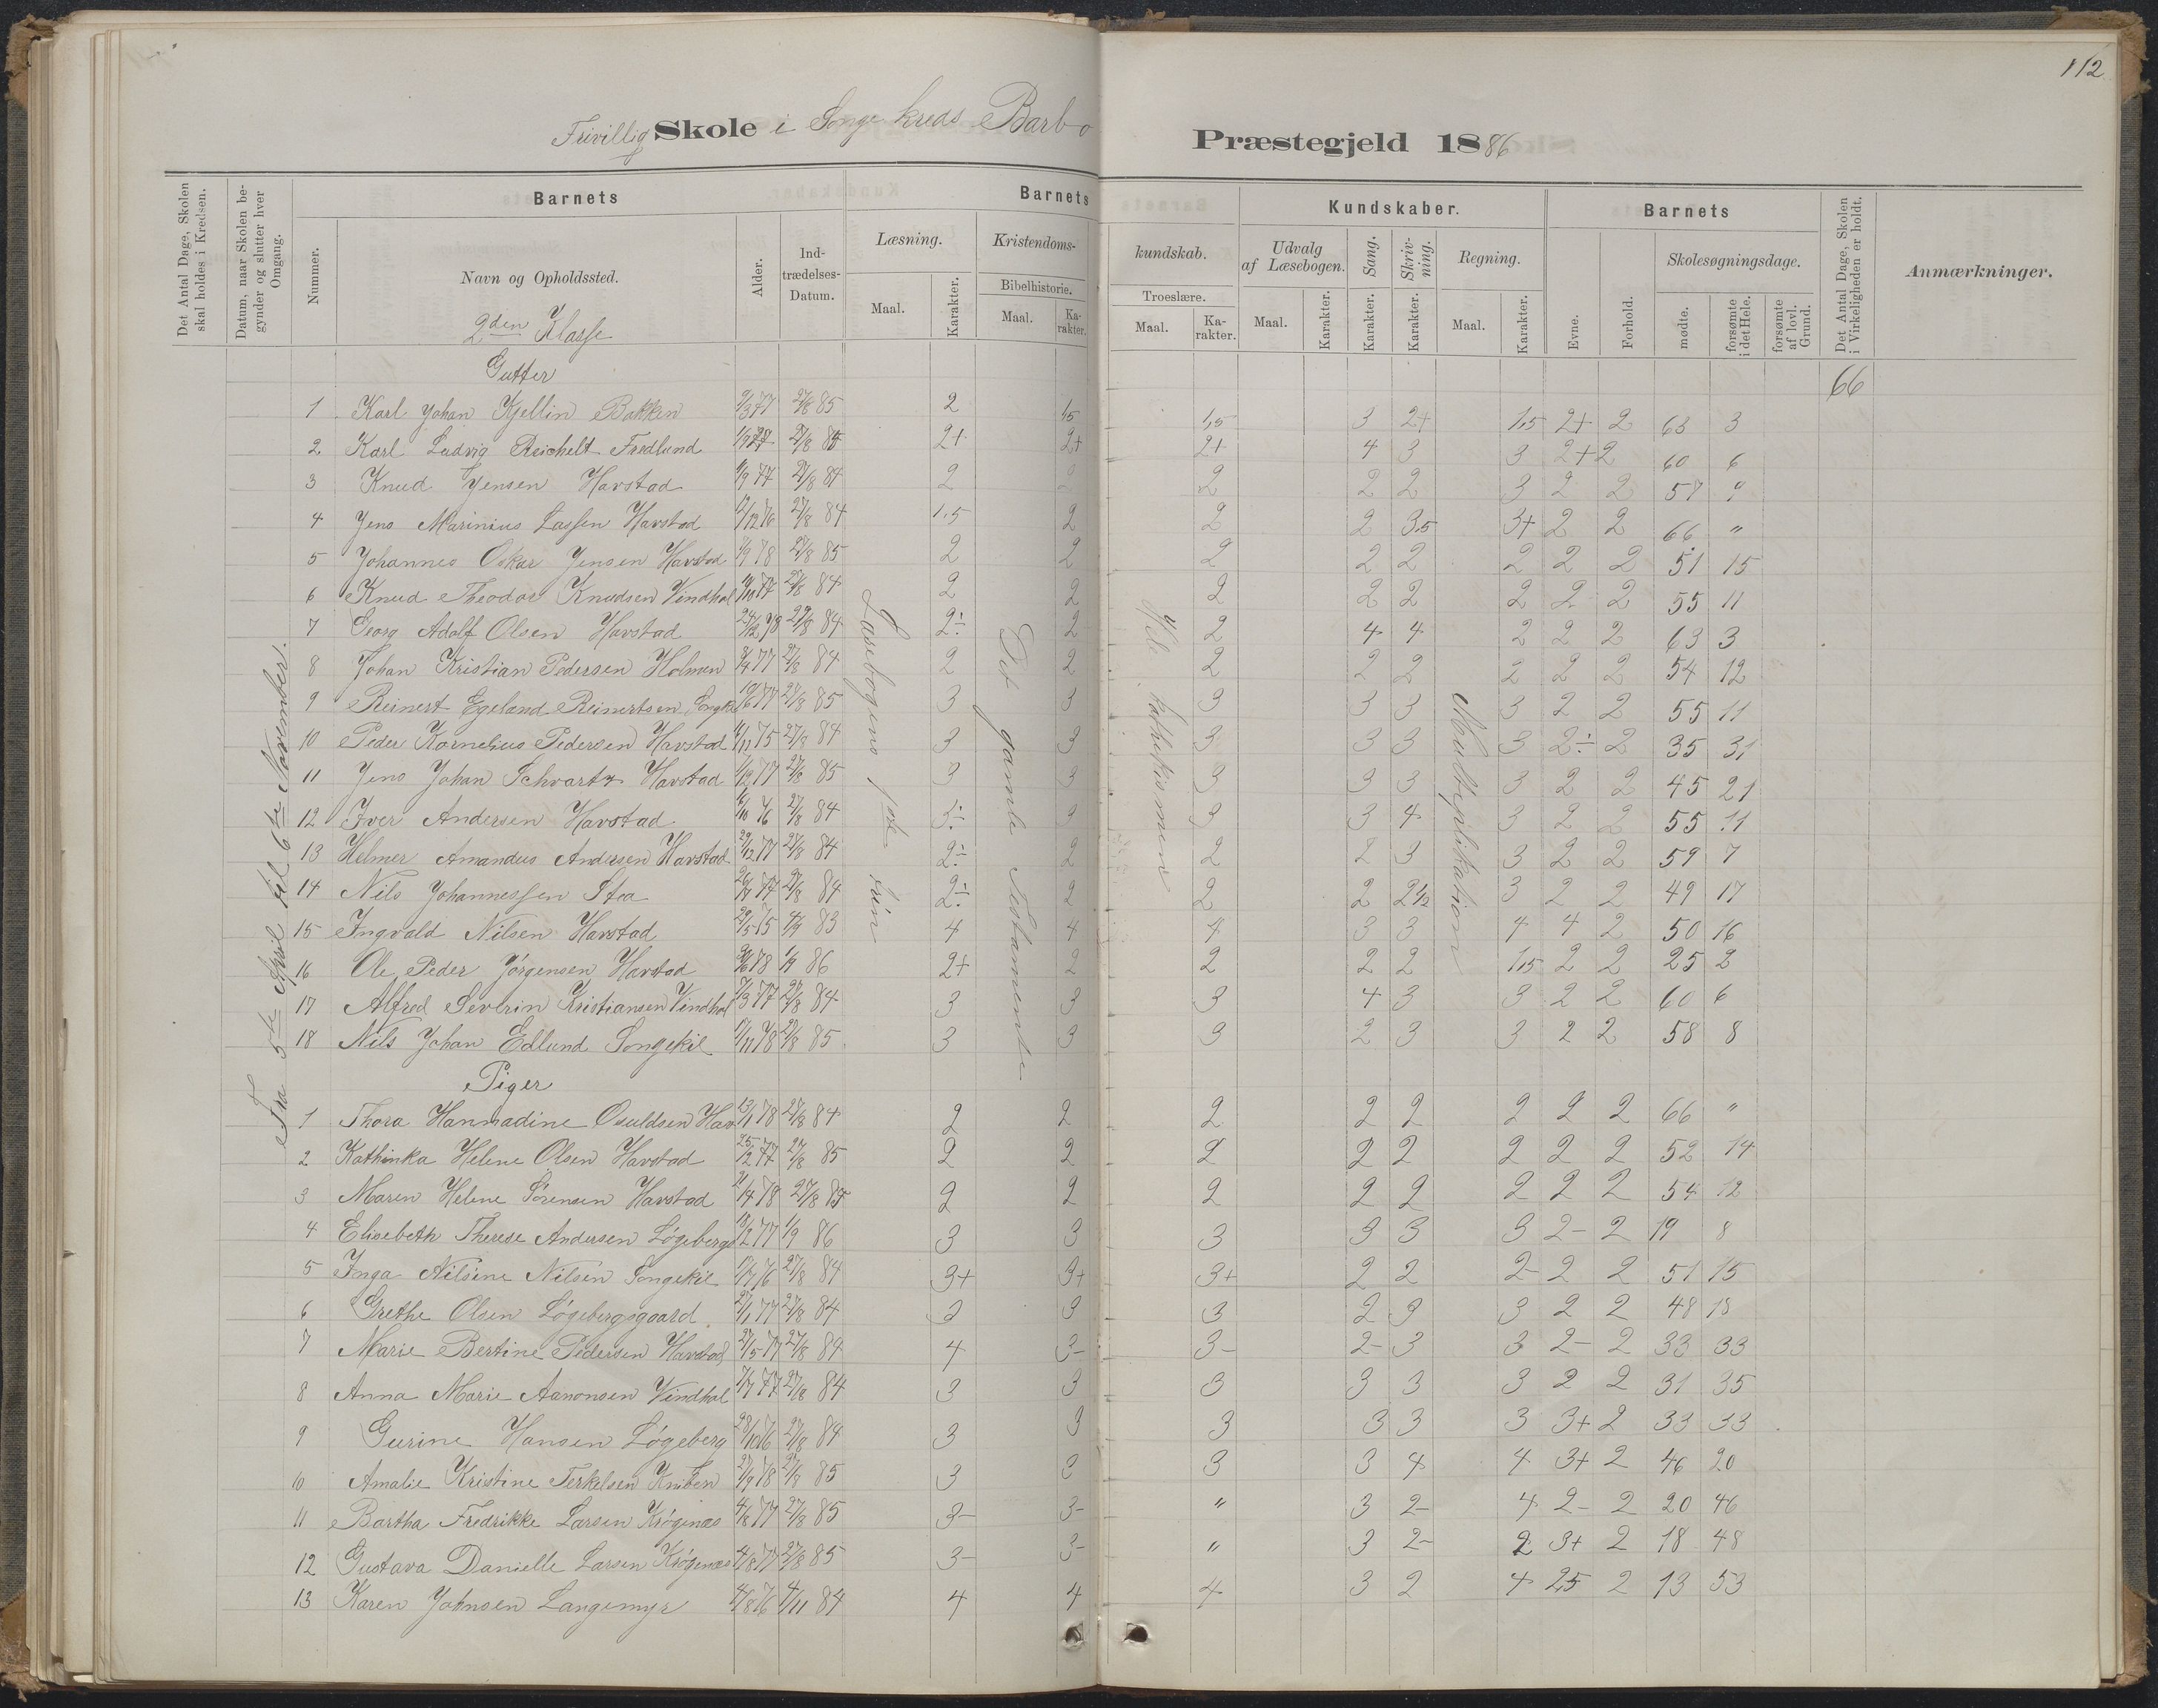 112
Frivillig Skole i Songe Kreds Barbo Præstegjeld 1886
Det Antal Dage, Skolen skal holdes i Kredsen.
Datum, naar Skolen begynder og slutter hver Omgang.
Barnets
Nummer.
Navn og Opholdssted.
Alder.
Indtrædelses-Datum.
Barnets Kundskaber.
Læsning.
Maal. Karakter.
Kristendomskundskab.
Bibelhistorie.
Maal. Karakter.
Troeslære.
Maal. Karakter.
Udvalg af Læsebogen.
Maal. Karakter.
Sang. Karakter.
Skrivning. Karakter.
Regning.
Maal. Karakter.
Barnets
Evne. Forhold.
Skolesøgningsdage.
mødte. forsømte i det Hele. forsømte af lovl. Grund.
Det Antal Dage, Skolen i Virkeligheden er holdt.
Anmærkninger.
Fra 5te April til 6te November.
Læsebogens 1ste Trin
Det gamle Testamente
Hele kathekismen
Multiplikation
2den Klasse
Gutter
66
1 Karl Johan Kjellin Bakken 77 27/8 85 2 1,5 1,5 3 2+ 1,5 2+ 2 63 3
2 Karl Ludvig Reichelt Fredlund 27/8 2+ 2+ 2+ 4 3 3 2+ 2 60 6
3 Knud Jensen Havstad 1/9 77 27/8 84 2 2 2 2 2 3 2 2 57 9
4 Jens Marinius Lassen Havstad 76 27/8 84 1,5 2 2 2 3,5 3+ 2 2 66 "
5 Johannes Oskar Jensen Havstad 1/9 78 27/8 85 2 2 2 2 2 2 2 2 51 15
6 Knud Theodor Knudsen Vindhol 77 27/8 84 2 2 2 2 2 2 2 2 55 11
7 Georg Adolf Olsen Havstad 24/12 78 27/8 84 2÷ 2 2 4 4 2 2 2 63 3
8 Johan Kristian Pedersen Holmen 77 27/8 84 2 2 2 2 2 2 2 2 54 12
9 Reinert Egeland Reinertsen 77 27/8 85 3 3 3 3 3 3 2 2 55 11
10 Peder Kornelius Pedersen Havstad 75 27/8 84 3 3 3 3 3 3 2÷ 2 35 31
11 Jens Johan Schvartz Havstad 77 27/8 85 3 3 3 3 3 3 2 2 45 21
12 Iver Andersen Havstad 76 27/8 84 3÷ 3 3 3 4 3 2 2 55 11
13 Helmer Amandus Andersen Havstad 29/12 77 27/8 84 2÷ 2 2 2 3 3 2 2 59 7
14 Nils Johannessen Stea 77 27/8 84 2÷ 2 2 2 2 1/2 3 2 2 49 17
15 Ingvald Nilsen Havstad 29/5 75 83 4 4 4 3 3 4 4 2 50 16
16 Ole Peder Jørgensen Havstad 78 1/9 86 2+ 2 2 2 2 1,5 2 2 25 2
17 Alfred Severin Kristiansen Vindhol 77 27/8 84 3 3 3 4 3 3 2 2 60 6
18 Nils Johan Edlund Songekil 78 27/8 85 3 3 3 2 3 3 2 2 58 8
Piger
1 Thora Hannadine Osuldsen Hav 13/1 78 27/8 84 2 2 2 2 2 2 2 2 66 "
2 Kathinka Helene Olsen Havstad 25/2 77 27/8 85 2 2 2 2 2 2 2 2 52 14
3 Maren Helene Sørensen Havstad 78 27/8 2 2 2 2 2 2 2 2 54 12
4 Elisebeth Therese Andersen Løgebergs 77 1/9 86 3 3 3 3 3 3 2- 2 19 8
5 Inga Nilsine Nilsen Songekil 76 27/8 84 3+ 3+ 3+ 2 2 2- 2 2 51 15
6 Grethe Olsen Løgebergsgaard 27/1 77 27/8 84 3 3 3 2 3 3 2 2 48 18
7 Marie Bertine Pedersen Havstad 27/5 77 27/8 84 4 3- 3- 2- 3 3 2- 2 33 33
8 Anna Marie Aanonsen Vindhol 1/7 77 27/8 84 3 3 3 3 3 3 2 2 31 35
9 Gurine Hansen Løgeberg 28/10 76 27/8 84 3 3 3 3 3 3 3+ 2 33 33
10 Amalie Kristine Terkelsen Kniben 27/9 78 27/8 85 3 3 3 3 4 4 3+ 2 46 20
11 Bartha Fredrikke Larsen Krøgenæs 4/8 77 27/8 85 3- 3- " 3 2- 4 2- 2 20 46
12 Gustava Danielle Larsen Krøgenæs 4/8 77 27/8 85 3- 3- " 3 2- 2 3+ 2 18 48
13 Karen Johnsen Langemyr 4/8 76 4/11 84 4 4 4 3 2 4 2,5 2 13 53